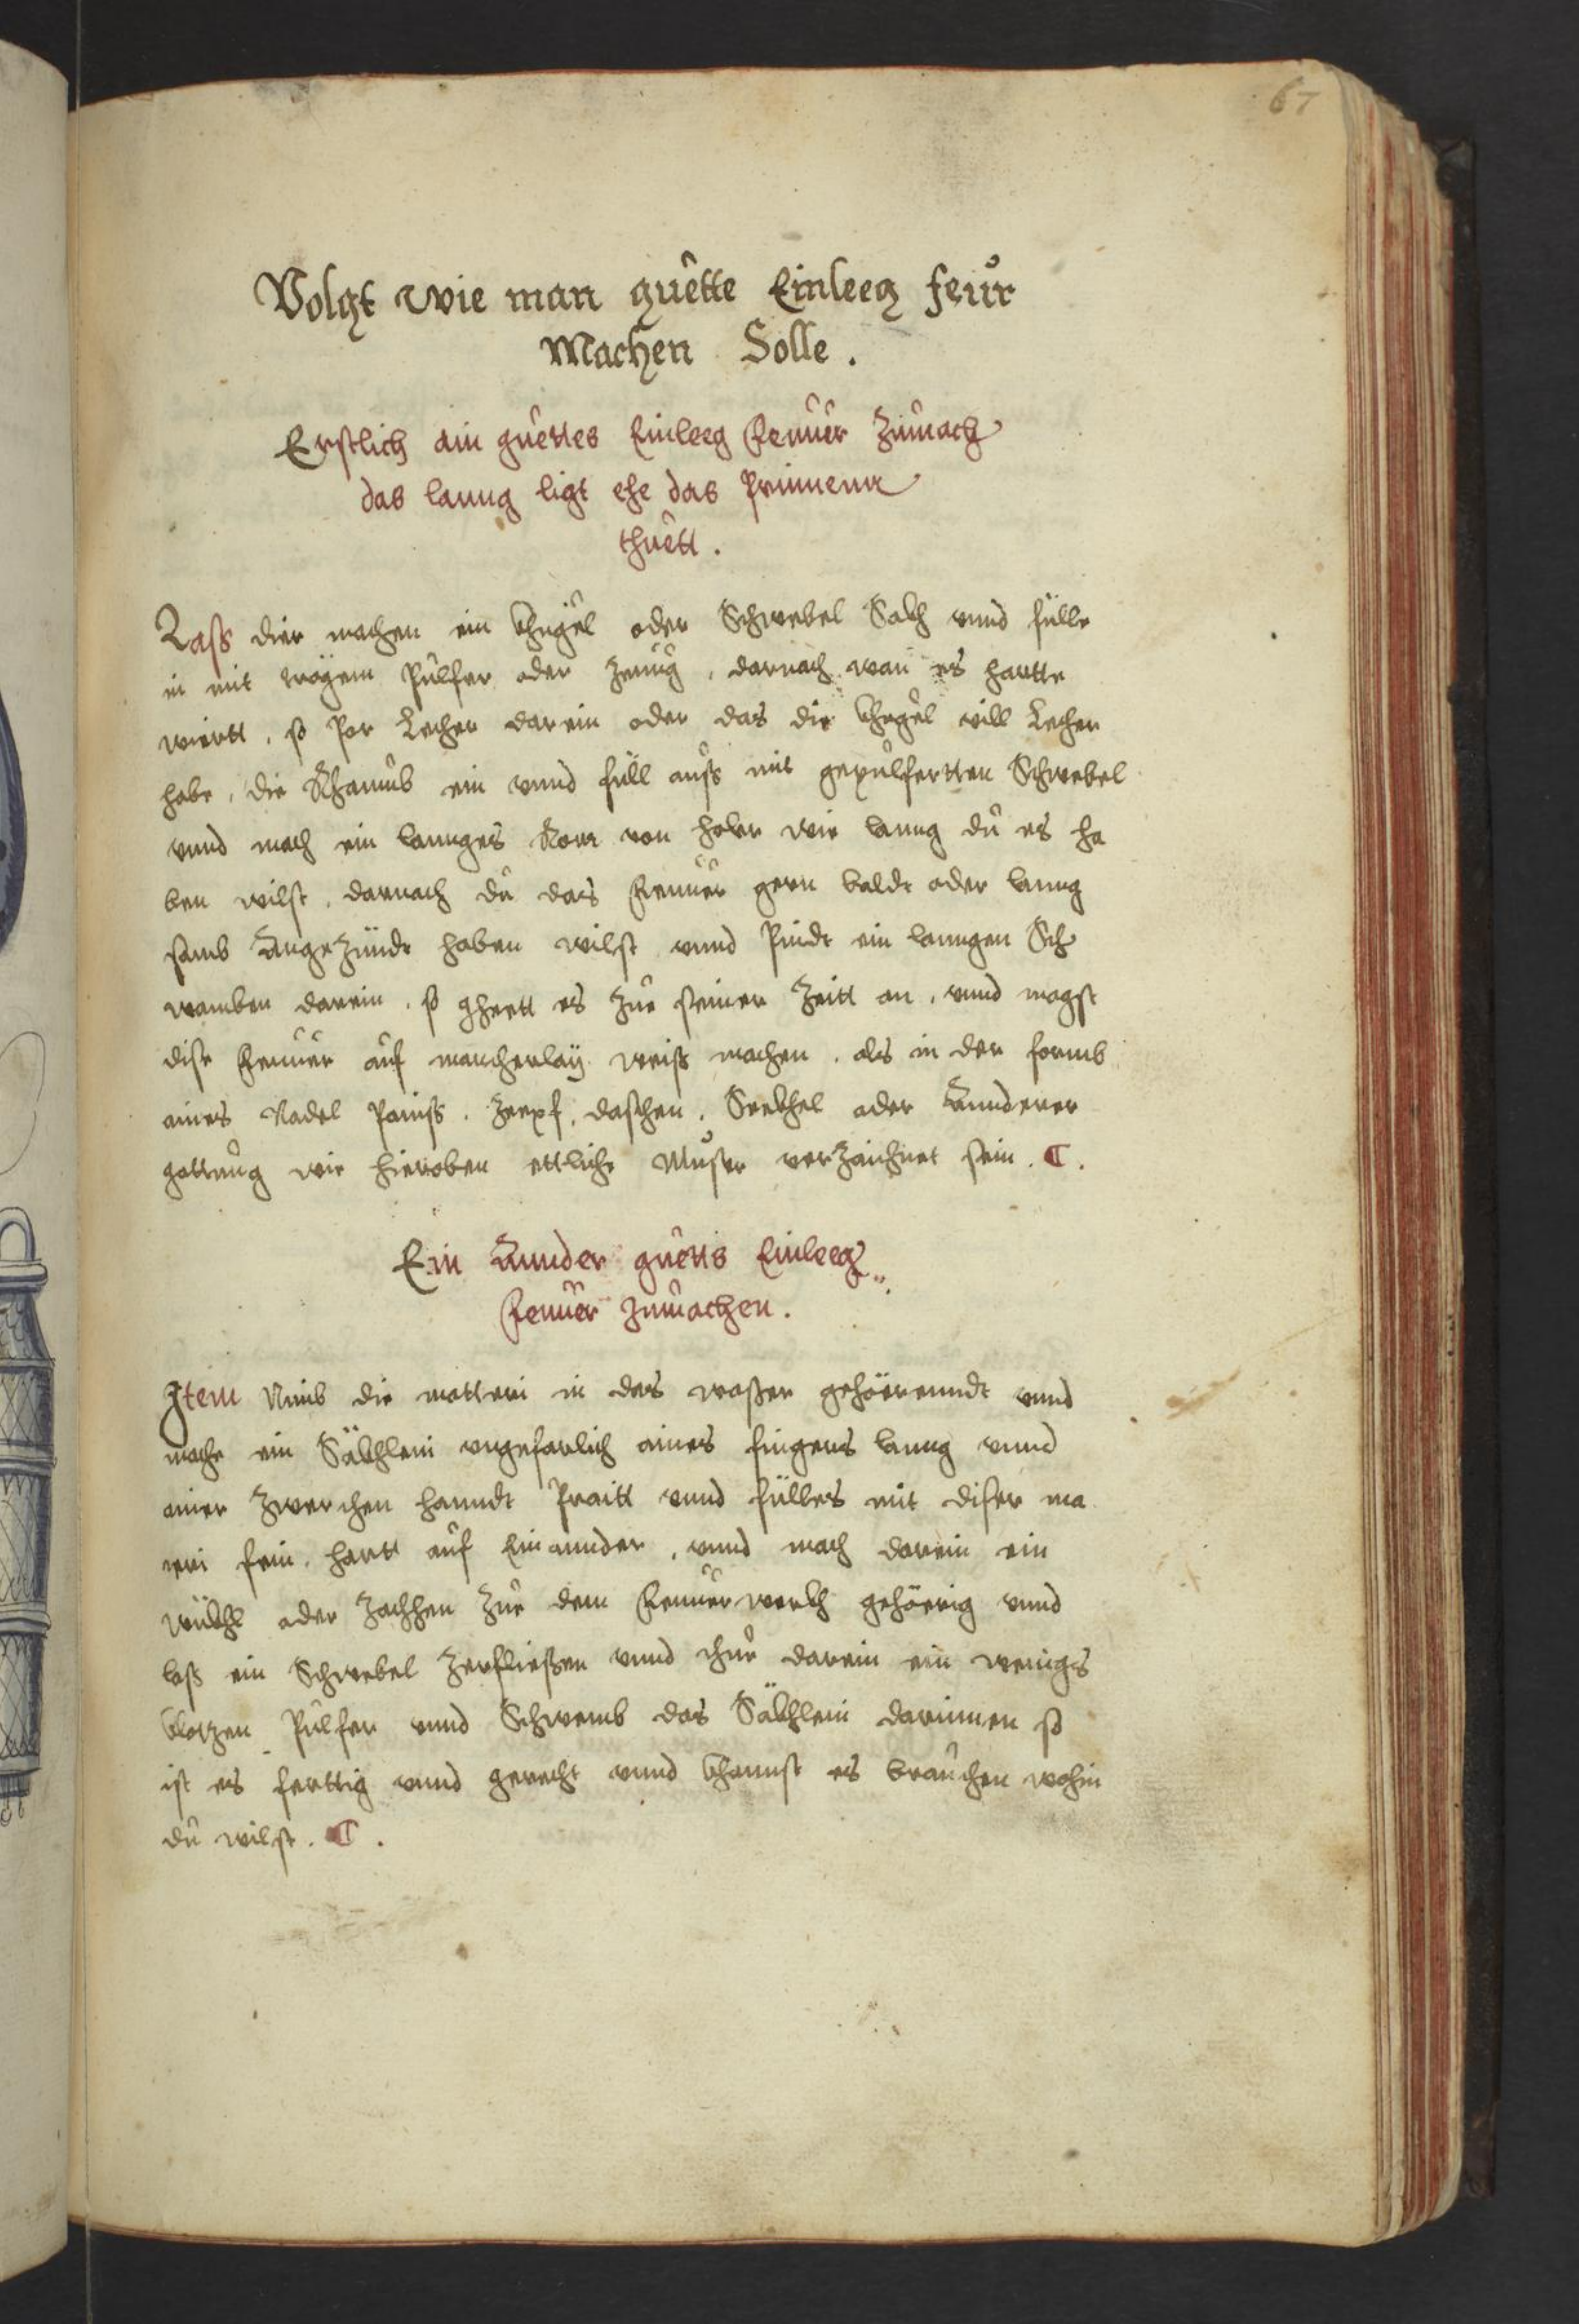 67
Volgt wie man guette Einleeg feur
Machen Solle.
Erstlich ain guettes Einleeg Feuuer Zumach
das lanng ligt ehe das Prinnenn
thuett.
Lass dier machen ein Khugel oder Schwebel Sakh vnnd fülle
in mit trägem Pulfer oder Zeuug, darnach wan es hartte
wiertt, so Por Lecher darein oder das die Khugel vill Lecher
habe, die Khamüb ein vnnd füll auss mit gepulfertten Schwebel
vnnd mach ein lannges Rorr von holer wie lanng du es ha
ben wilst, darnach du das Feuuer gern balde oder lanng
samb Angezündt haben wilst vnnd Pindt ein lanngen Sch
wamben darein, so gheett es Zue seiner Zeitt an, vnnd magst
dise Feuuer auf mancherlaÿ weiss machen, als in der formb
aines Nadel Paiuss, Zerpf, daschen, Seekhel oder Annderer
gattung wie hieroben ettliche Muster verzaichnet sein. C.
Ein Annder guetts Einleeg
Feuuer zumachen.
Item Nimb die matteri in das wasser gehöerenndt vnnd
mache ein Säkhlein vngefarlich aines fingers lanng vnnd
ainer zwerchen hanndt Praitt vnnd fülles mit diser ma
teri fein hartt auf Einannder, vnnd mach darein ein
wükhl oder Zachhen Zue dem Feuuerwerkh gehöerig vnnd
lass ein Schwebel Zerfliessen vnnd thue darein ein wenigs
Pulfer vnnd Schwemb das Säkhlein darinnen so
ist es ferttig vnnd gerecht vnnd khannst es brauchen wohin
du wilst. C.